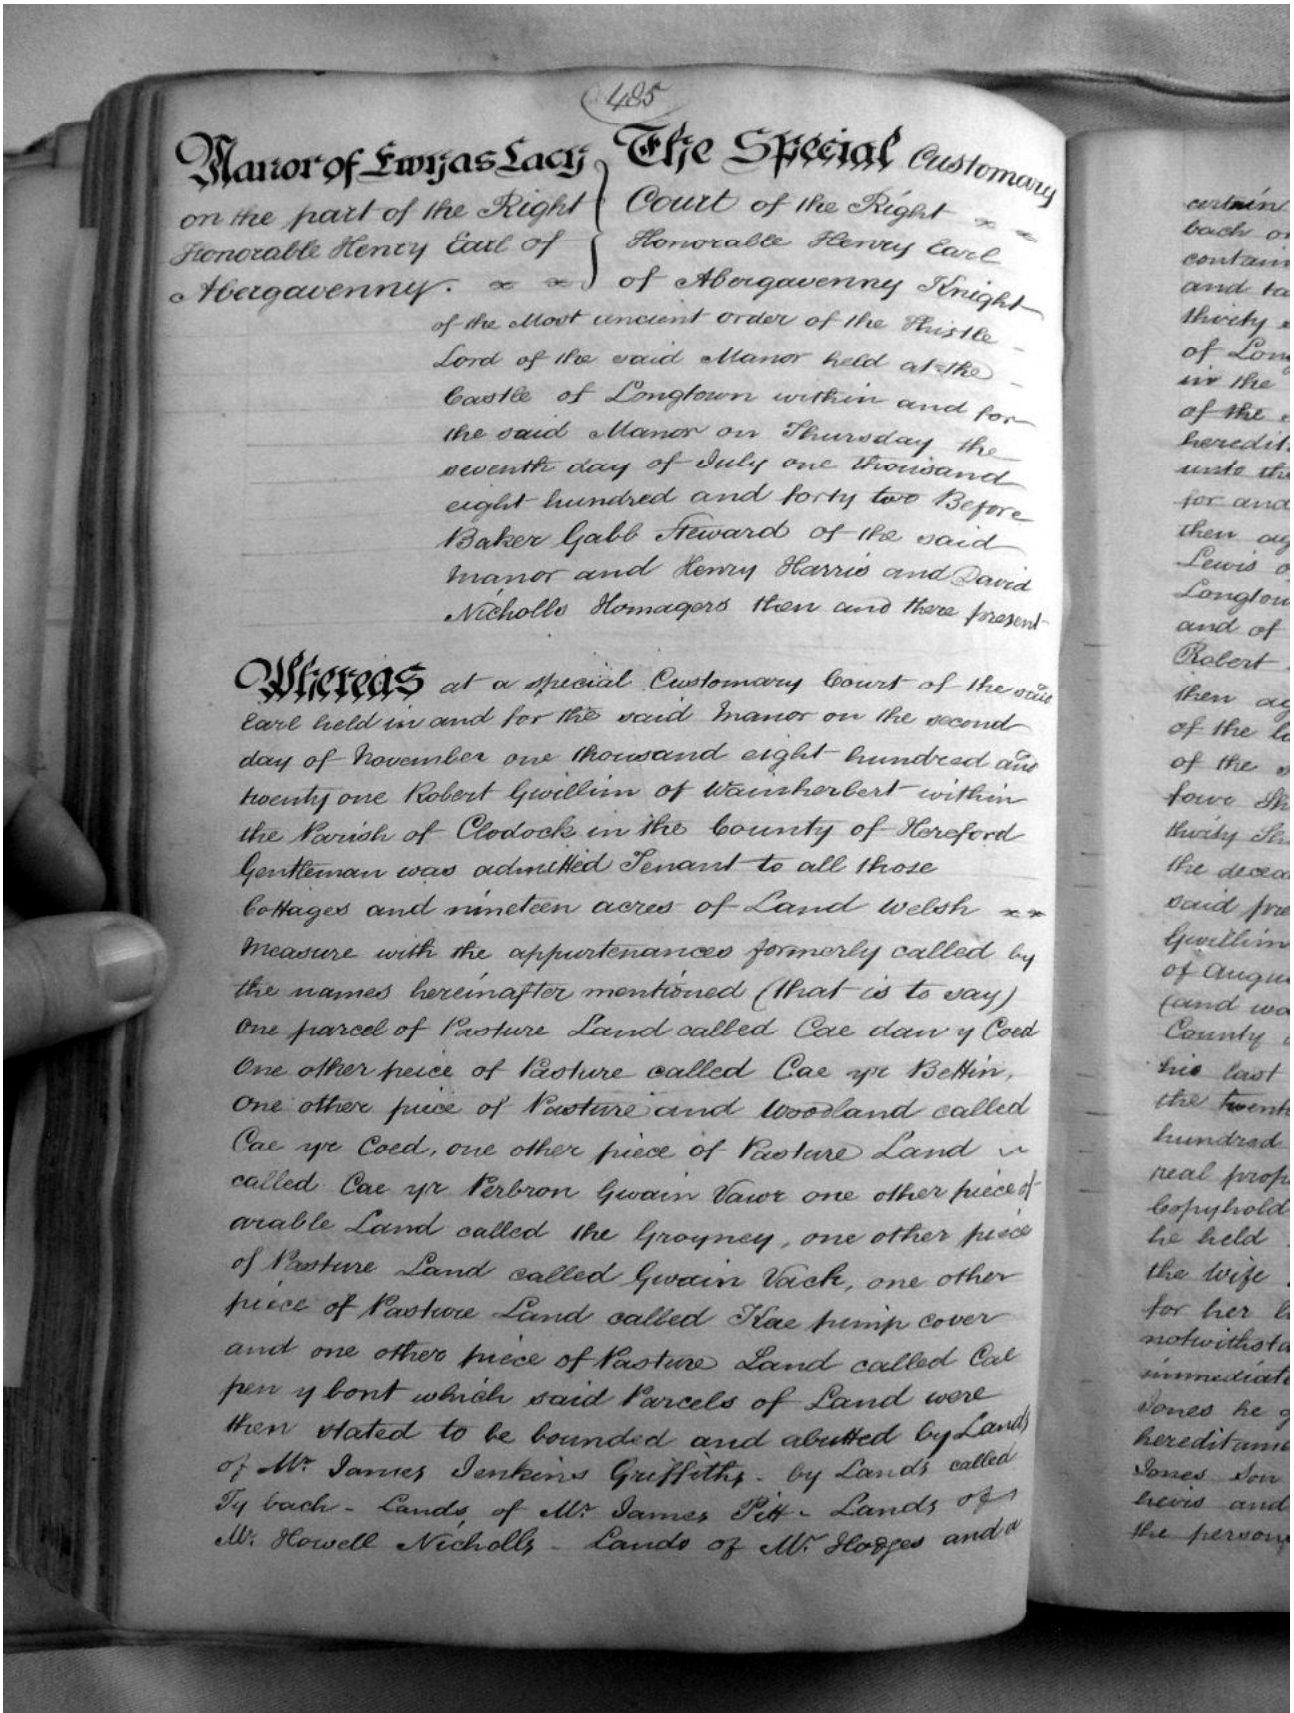 485
Manor of Ewyas Lacy
on the part of the Right
Honorable Henry Earl of
Abergavenny.
The Special Customary
Court of the Right
Honorable Henry Earl
of Abergavenny Knight
of the Most ancient order of the Thistle
Lord of the said Manor held at the
Castle of Longtown within and for
the said Manor on Thursday the
seventh day of July one thousand
eight hundred and forty two Before
Baker Gabb Steward of the said
Manor and Henry Harris and David
Nicholls Homagers then and there present
Whereas at a special Customary Court of the said
Earl held in and for the said Manor on the second
day of November one thousand eight hundred and
twenty one Robert Gwillim of Wainherbert within
the Parish of Clodock in the County of Hereford
Gentleman was admitted Tenant to all those
Cottages and nineteen acres of Land Welsh
Measure with the appurtenances formerly called by
the names hereinafter mentioned (that is to say)
One parcel of Pasture Land called Cae dan y Coed
One other peice of Pasture called Cae yr Bettin,
One other piece of Pasture and Woodland called
Cae yr Coed, one other piece of Pasture Land
called Cae yr Perbron Gwain Vawr one other piece of
arable Land called the Groyney, one other piece
of Pasture Land called Gwain Vach, one other
piece of Pasture Land called Kae pimp cover
and one other piece of Pasture Land called Cae
pen y bont which said Parcels of Land were
then stated to be bounded and abutted by Lands
of Mr. James Jenkins Griffiths - by Lands called
Ty bach - Lands of Mr. James Pitt - Lands of
Mr. Howell Nicholls - Lands of Mr. Hodges and a
certain
back
and
of
in the
of the
heredit
unto the
for and
then
Lewis
and of
Robert
then
of the
of the
the
said
Gwillim
of
(and
County
his last
the
hundred
real
Copyhold
he held
the Wife
for her
Jones he
Jones Son
heirs and
the person